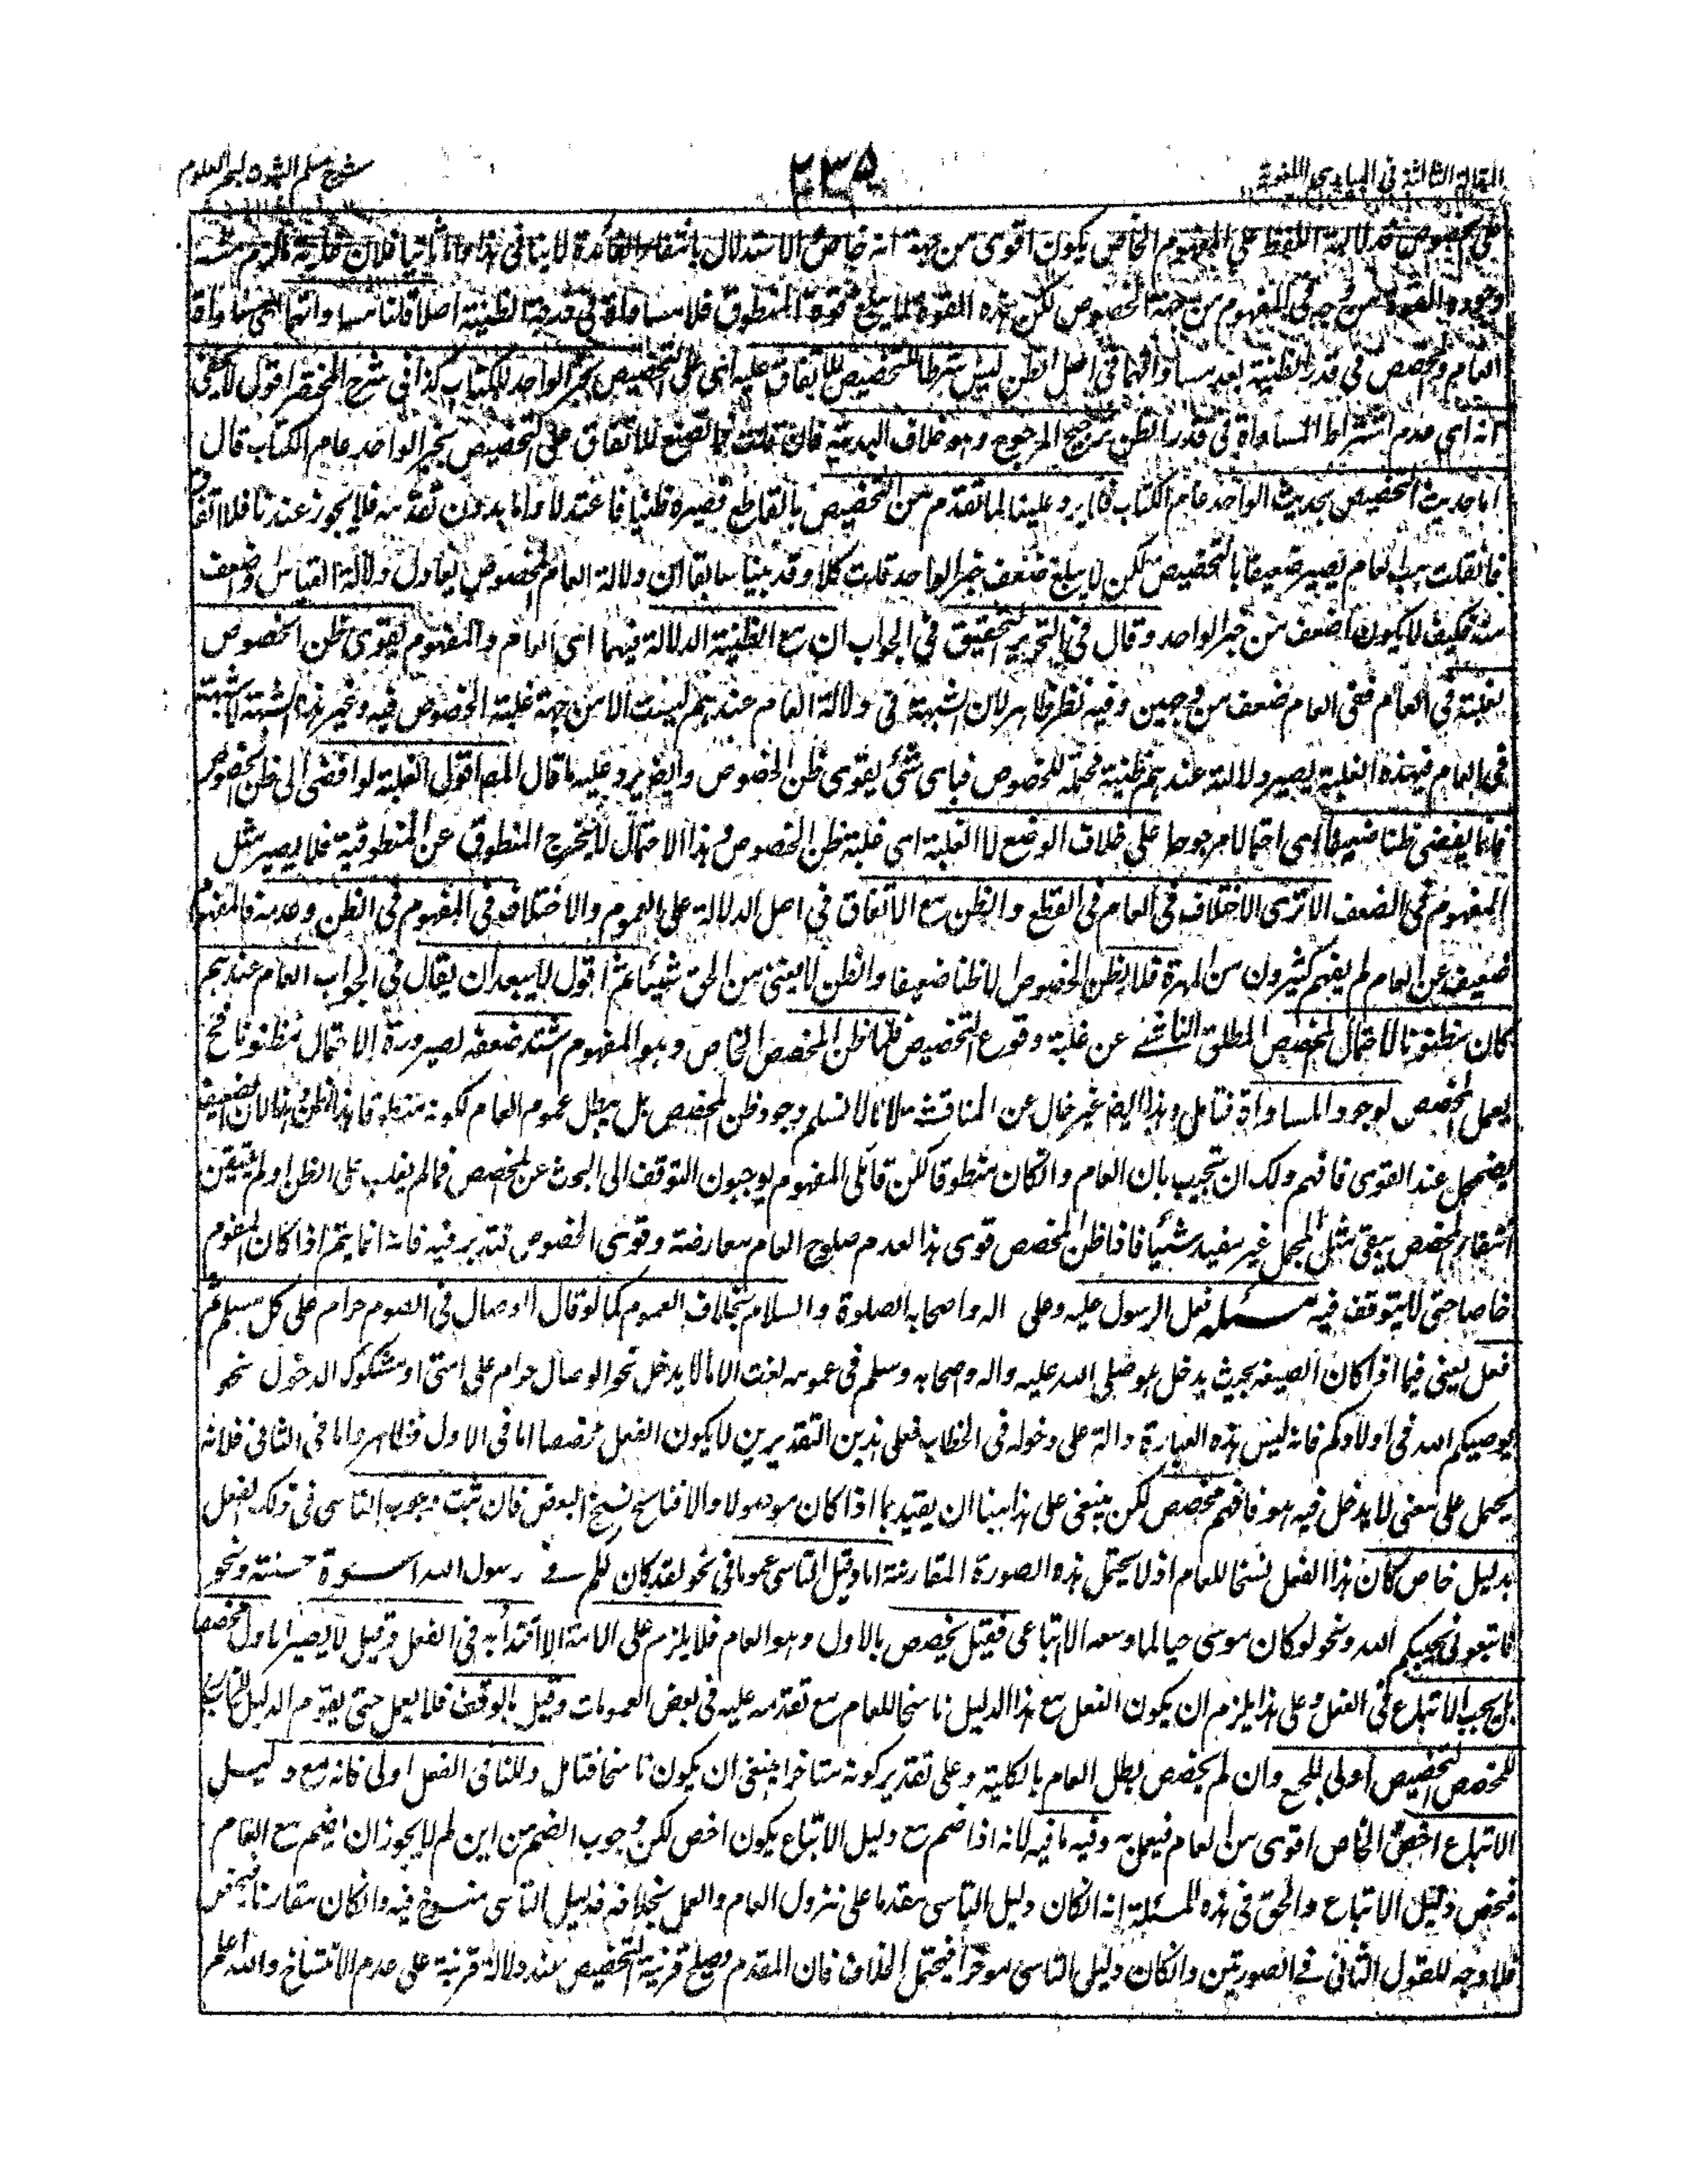 المقالة الثالثة في المبادي اللغوية
٢٣٥
شرح مسلم الثبوت لبحر العلوم
على فدلالة اللفظ على المفهوم الخاص يكون اقوى من جهة انه خاص الاستدلال بانتفاء الفائدة لا ينافي هذا واما ثانيا فلان غاية ما لزم منه
وجود القوة من وجه في المفهوم من جهة الخصوص لكن هذه القوة لا يبلغ قوة المنطوق فلا مساواة في قدر الظنية اصلا قلنا مساواتهما اى مساواة
العام والمخصص في قدر الظنية بعد مساواتهما في اصل الظن ليس شرطا للتخصيص للاتفاق عليه اى على التخصيص بخبر الواحد للكتاب كذا في شرح المختصر اقول لا يخفى
انه اى عدم اشتراط المساواة في قدر الظن ترجيح المرجوح وهو خلاف البديهة فان قلت فما تصنع للاتفاق على التخصيص بخبر الواحد عام الكتاب قال
اما حديث التخصيص بحديث الواحد عام الكتاب فلا يرد علينا لما تقدم من التخصيص بالقاطع فصيره ظنيا فاعتدلا واما بدون تقدمه فلا يجوز عندنا فلا اتفاق
فان قلت هب العام يصير ضعيفا بالتخصيص لكن لا يبلغ ضعف خبر الواحد قلت كلا وقد بينا سابقا ان دلالة العام المخصوص يعادل دلالة القياس واضعف
منه فكيف لا يكون اضعف من خبر الواحد وقال في التحرير التحقيق في الجواب ان مع الظنية الدلالة فيهما اى العام والمفهوم يقوى ظن الخصوص
لغلبته في العام ففي العام ضعف من وجهين وفيه نظر ظاهر لان الشبهة في دلالة العام عندهم ليست الا من جهة غلبة الخصوص فيه وغير هذه الشبهة لا شبهة
في العام فبهذه الغلبة يصير دلالته عندهم ظنية محتملة للخصوص فباى شئ يقوى ظن الخصوص وايضا يرد عليه ما قال المص اقول الغلبة لو افضى الى ظن الخصوص
فانما يفضى ظنا ضعيفا اى احتمالا مرجوحا على خلاف الوضع لا الغلبة اى غلبة ظن الخصوص وهذا الاحتمال لا يخرج المنطوق عن المنطوقية فلا يصير مثل
المفهوم في الضعف الا ترى الاختلاف في العام في القطع والظن مع الاتفاق في اصل الدلالة على العموم والاختلاف في المفهوم في الظن وعدمه فالمفهوم
ضعيف عن العام لم يفهم كثيرون من المهرة فلا يظن الخصوص الا ظنا ضعيفا والظن لا يغنى من الحق شيئا ثم اقول لا يبعد ان يقال في الجواب العام عندهم
كان مظنونا لاحتمال المخصص المطلق الناشئ عن غلبة وقوع التخصيص فلما ظن المخصص الخاص وهو المفهوم اشتد ضعفه لصيرورة الاحتمال مظنونا فح
يعمل المخصص لوجود المساواة فتأمل وهذا ايضا غير خال عن المناقشة لانا لا نسلم وجود ظن المخصص بل يبطل عموم العام لكونه منطوقا هذا الظن لان الضعيف
يضمحل عند القوى فافهم ولك ان تجيب بان العام وانكان منطوقا لكن قائلى المفهوم يوجبون التوقف الى البحث عن المخصص فما لم يغلب على الظن او لم يتيقن
انتفاء المخصص يبقى مثل المجمل غير مفيد شيئا فاذا ظن المخصص قوى هذا لعدم صلوح العام معارضة وقوى الخصوص فتدبر فيه فانه انما يتم اذا كان المفهوم
خاصا حتى لا يتوقف فيه مسئلة فعل الرسول عليه وعلى اله واصحابه الصلوة والسلام بخلاف العموم كما لو قال الوصال في الصوم حرام على كل مسلم ثم
فعل يعنى فيما اذا كان الصيغة بحيث يدخل هو صلى الله عليه واله واصحابه وسلم في عمومه لغة الا ما لا يدخل نحو الوصال حرام على امتى او مشكوك الدخول نحو
يوصيكم الله في اولادكم فانه ليس هذه العبارة دالة على دخوله في الخطاب فعلى هذين التقديرين لا يكون الفعل مخصصا اما في الاول فظاهر واما في الثاني فلانه
يحمل على معنى لا يدخل فيه هو فافهم مخصص لكن ينبغى على مذهبنا ان يقيد بما اذا كان موصولا والا فناسخ نسخ البعض فان ثبت وجوب التاسى في ذلك الفعل
بدليل خاص كان هذا الفعل نسخا للعام اذ لا يحتمل هذه الصورة المقارنة اما دليل التاسى عموما في نحو لقد كان لكم فى رسول الله اسوة حسنة ونحو
فاتبعونى يحببكم الله ونحو لو كان موسى حيا لما وسعه الا اتباعى فقيل يخصص بالاول وهو العام فلا يلزم على الامة الاقتداء به في الفعل وقيل لا يصير الاول مخصصا
بل يجب الاتباع في الفعل وعلى هذا يلزم ان يكون الفعل مع هذا الدليل ناسخا للعام مع تقدمه عليه في بعض العمومات وقيل بالوقف فلا يعمل حتى يقوم الدليل
للمخصص التخصيص اولى للجمع وان لم يخصص بطل العام بالكلية وعلى تقدير كونه متاخرا ينبغى ان يكون ناسخا فتامل وللنافى الفعل اولى فانه مع دليل
الاتباع اخص الخاص اقوى من العام فيعمل به وفيه ما فيه لانه اذا ضم مع دليل الاتباع يكون اخص لكن وجوب الضم من اين لم لا يجوز ان يضم مع العام
فيخص دليل الاتباع والحق في هذه المسئلة انه انكان دليل التاسى مقدما على نزول العام والعمل بخلافه فدليل التاسى منسوخ فيه وانكان مقارنا فيخص
فلا وجه للقول الثانى فى الصورتين وانكان دليل التاسى موخرا فيحتمل الخلاف فان المقدم يصلح قرينة التخصيص عند دلالة قرينة على عدم الانتساخ والله اعلم